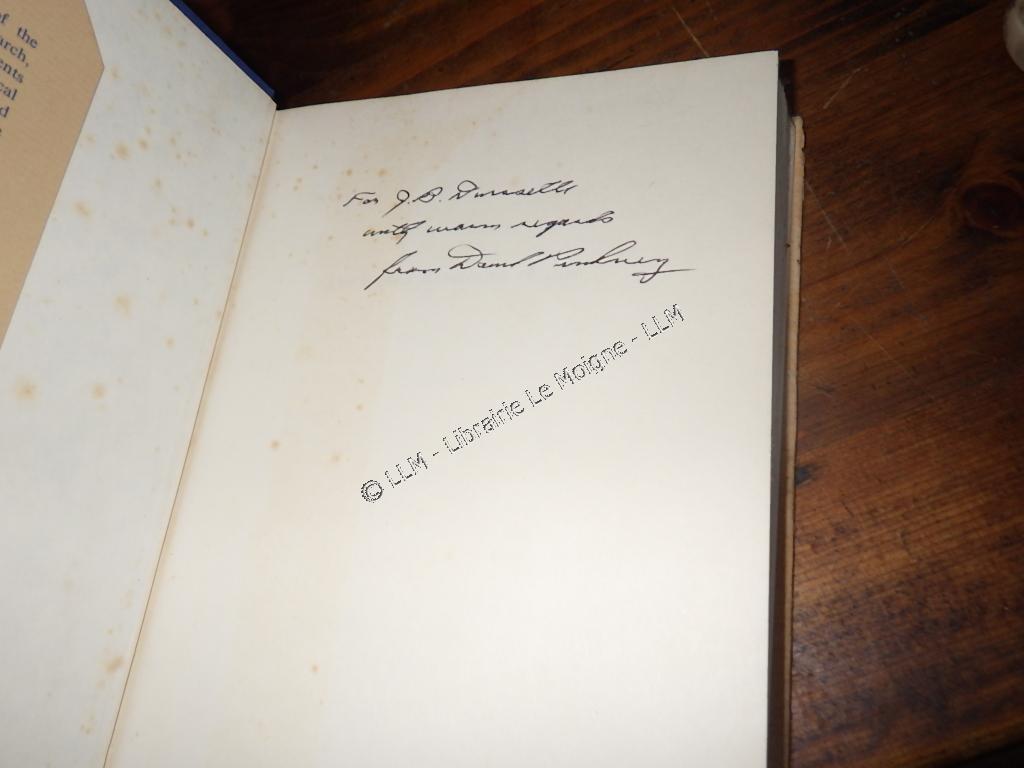 of the
arch,
ents
cal
d
For J. B. Duroselle
with warm regards
from David Pinkney
© LLM - Librairie Le Moigne - LLM